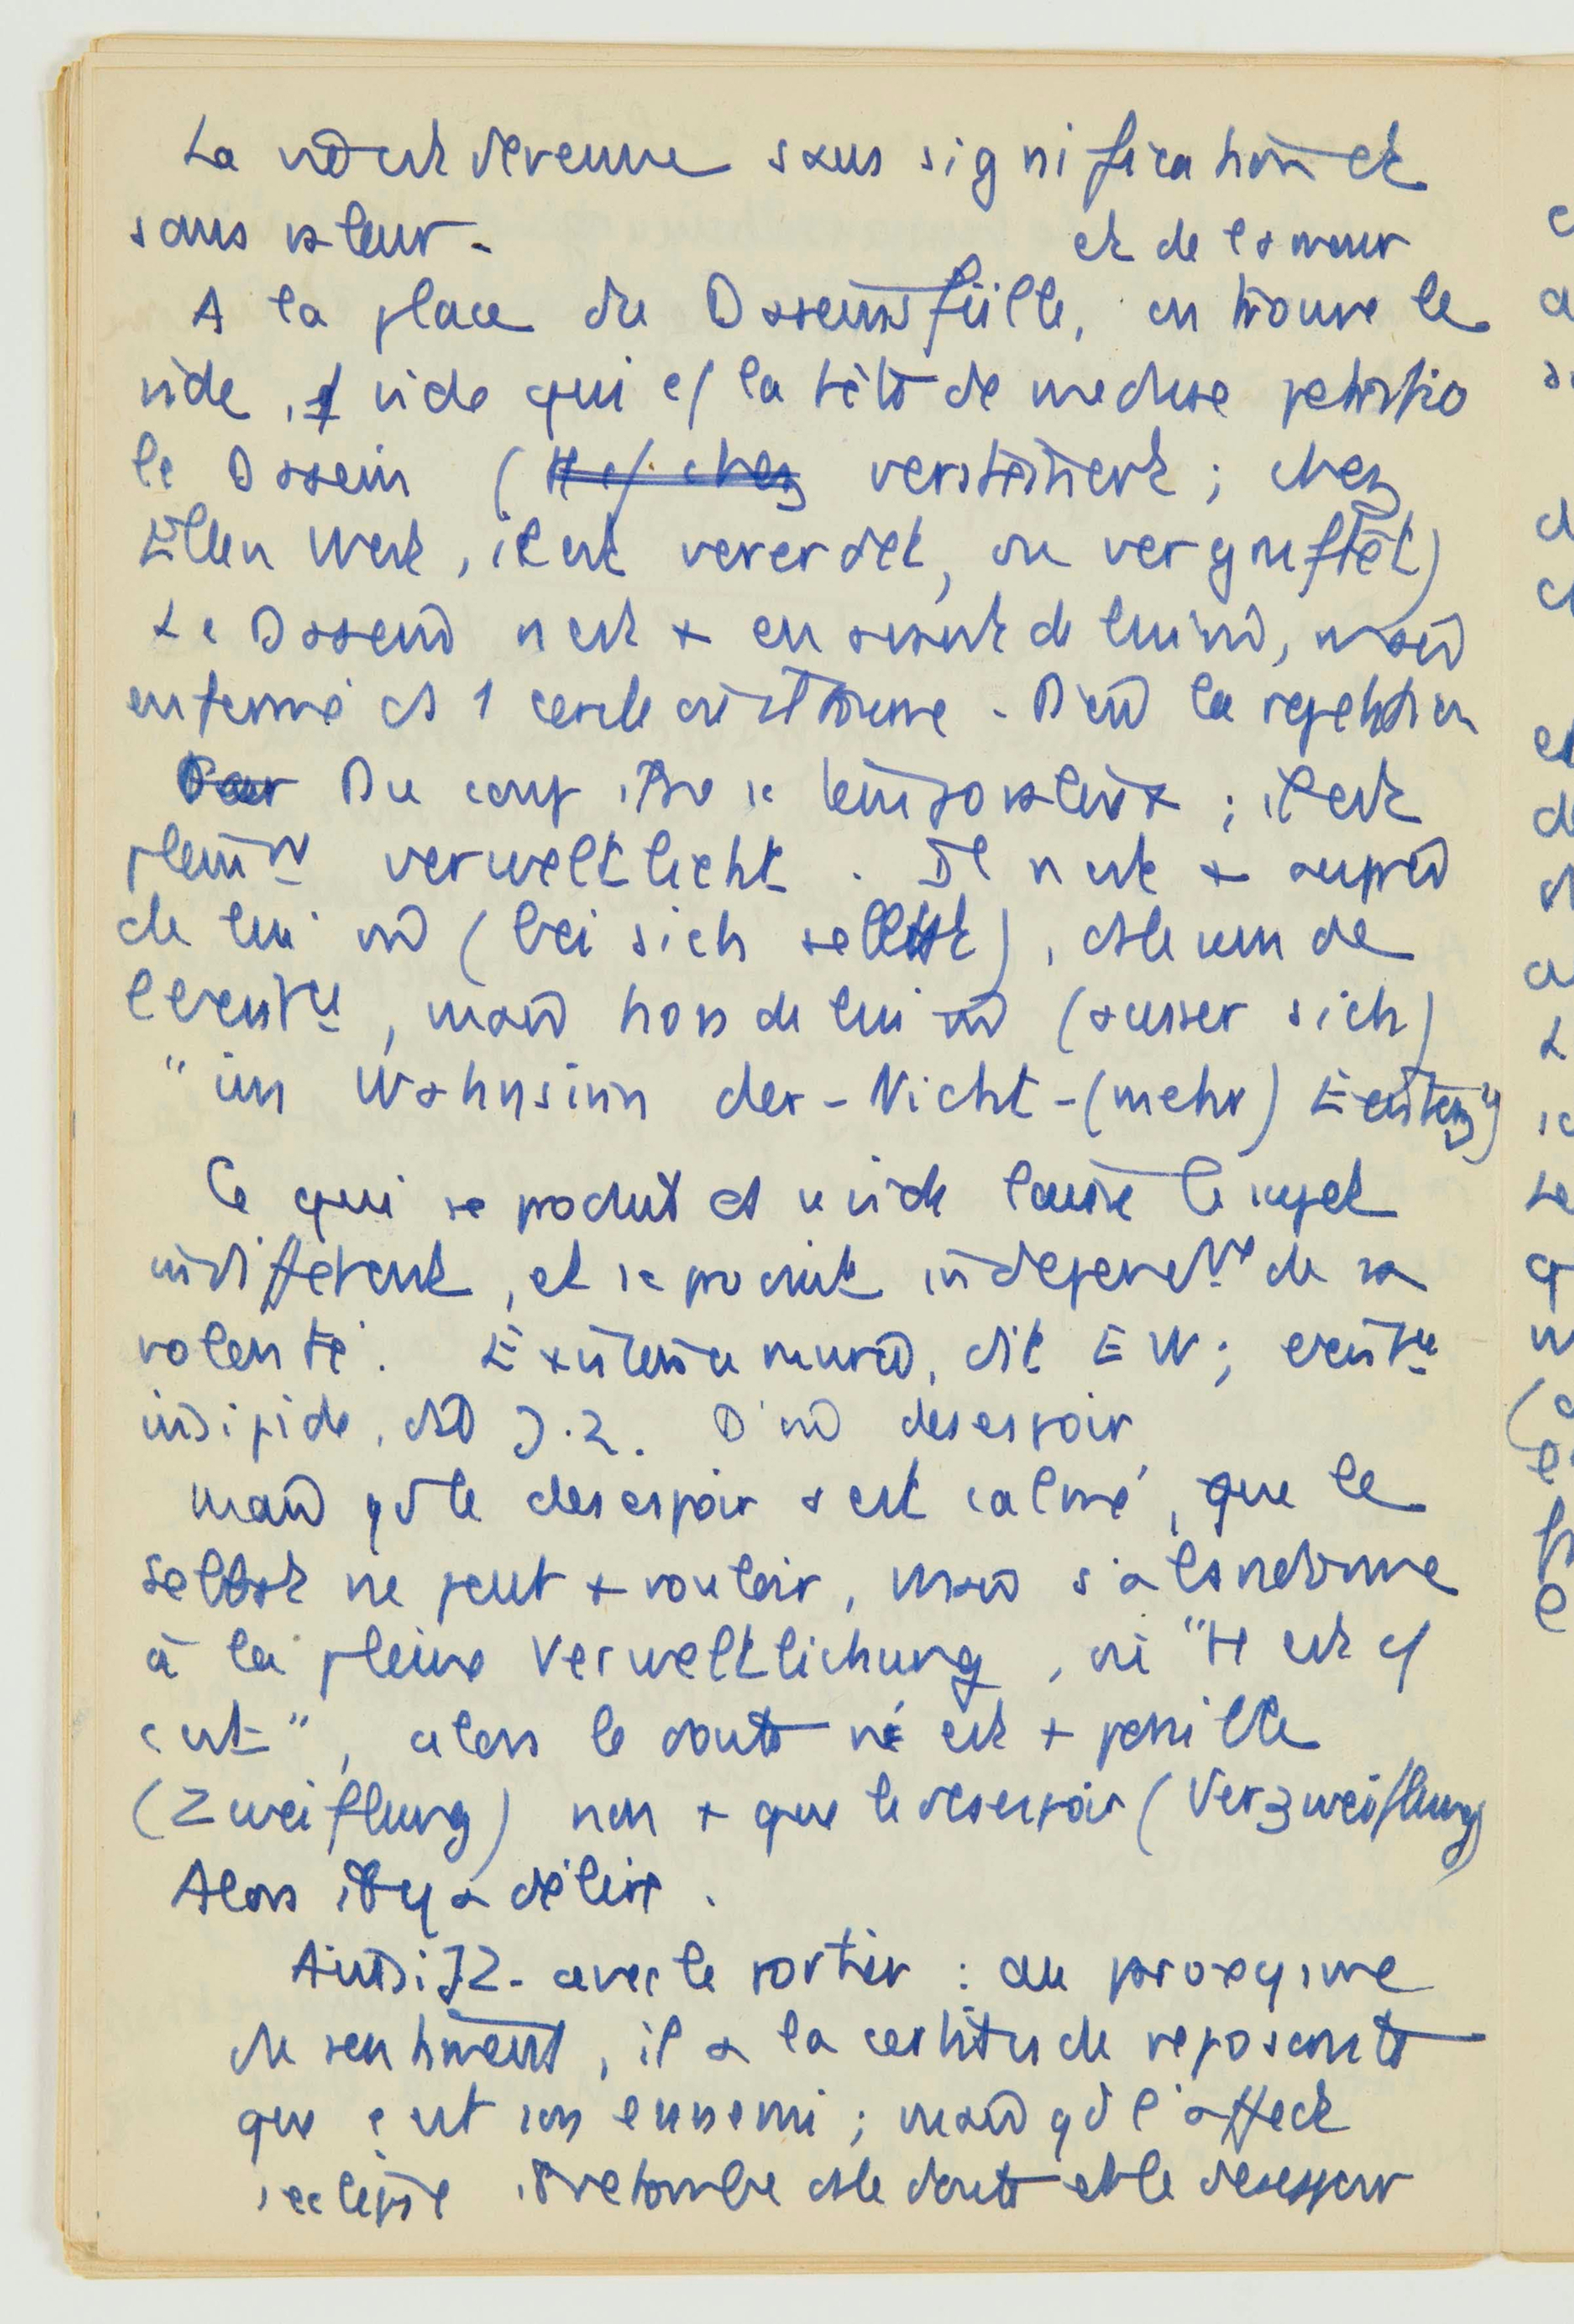 La vie est devenue sans signification et
sans valeur.
et de l'amour
A la place du Daseinsfülle, on trouve le
vide, 1 vide qui c/ la tête de meduse petrifie
le Dasein ( versteinert ; chez
Ellen West, il est vererdet, ou vergruftet)
Le Dasein n'est + en avant de lui m̂, mais
enfermé ds 1 cercle où il tourne. D'où la repetition
Du coup il se ; il est
pleinᵗ verweltlicht. Il n'est + auprès
de lui m̂ (bei sich selbst), ds le sein de
l'existᶜᵉ, mais hors de lui m̂ (ausser sich)
"im Wahnsinn der-Nicht-(mehr) Existenz")
Ce qui se produit ds ce vide laisse le sujet
indifférent, et se produit independᵗ de sa
volonté. Existence mauvaise, dit EW; existᶜᵉ
insipide, dit J.Z. D'où desespoir
mais qd le desespoir s'est calmé, que le
Selbst ne peut + vouloir, mais s'abandonne
à la pleine Verweltlichung, où "H est c/
c'est", alors le doute n'est + possible
(Zweiflung) non + que le desespoir (Verzweiflung)
Alors il y a délire.
Ainsi JZ. avec le portier : au paroxysme
du sentiment, il a la certitude reposante
que c'est son ennemi ; mais qd l'affect
s'eclipse il retombe ds le doute et le desespoir